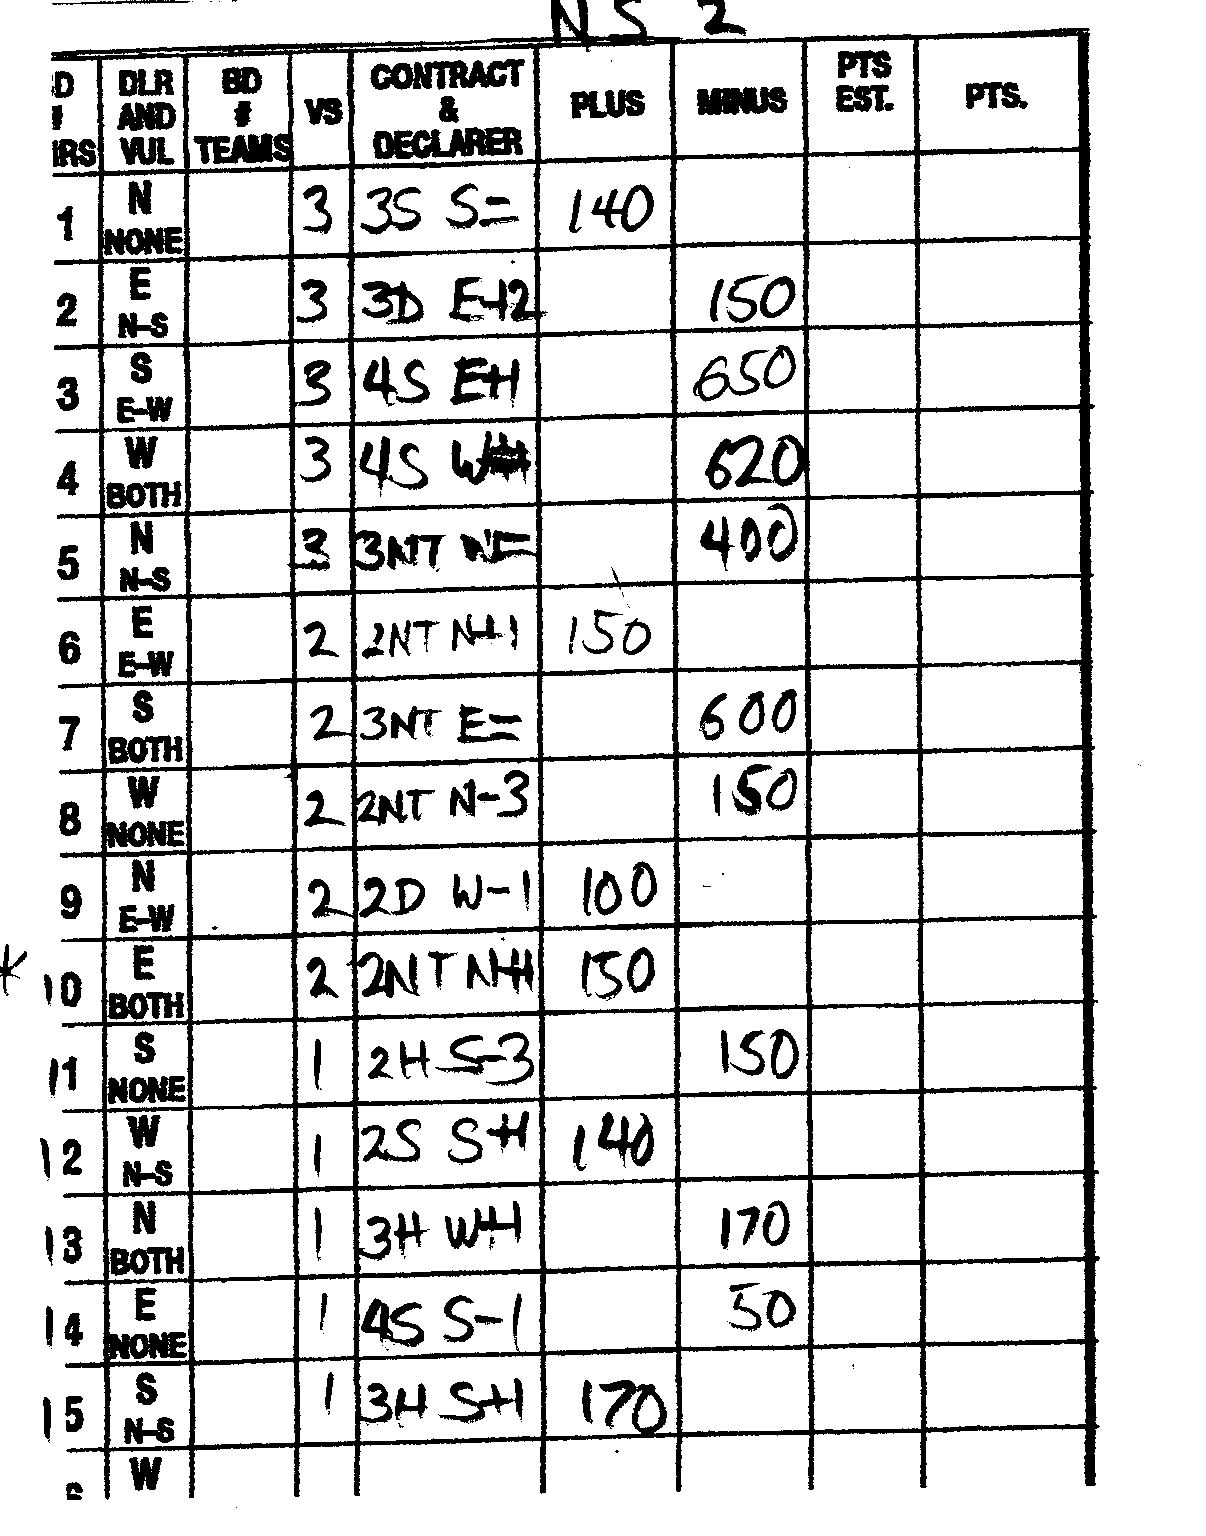 NS 2
D # IRS DLR AND VUL BD # TEAMS VS CONTRACT & DECLARER PLUS MINUS PTS EST. PTS.
1 N NONE 3 3S S= 140
2 E N-S 3 3D E+2 150
3 S E-W 3 4S E+1 650
4 W BOTH 3 4S W 620
5 N N-S 3 3NT W= 400
6 E E-W 2 2NT N+1 150
7 S BOTH 2 3NT E= 600
8 W NONE 2 2NT N-3 150
9 N E-W 2 2D W-1 100
* 10 E BOTH 2 2NT N+1 150
11 S NONE 1 2H S-3 150
12 W N-S 1 2S S+1 140
13 N BOTH 1 3H W+1 170
14 E NONE 1 4S S-1 50
15 S N-S 1 3H S+1 170
W